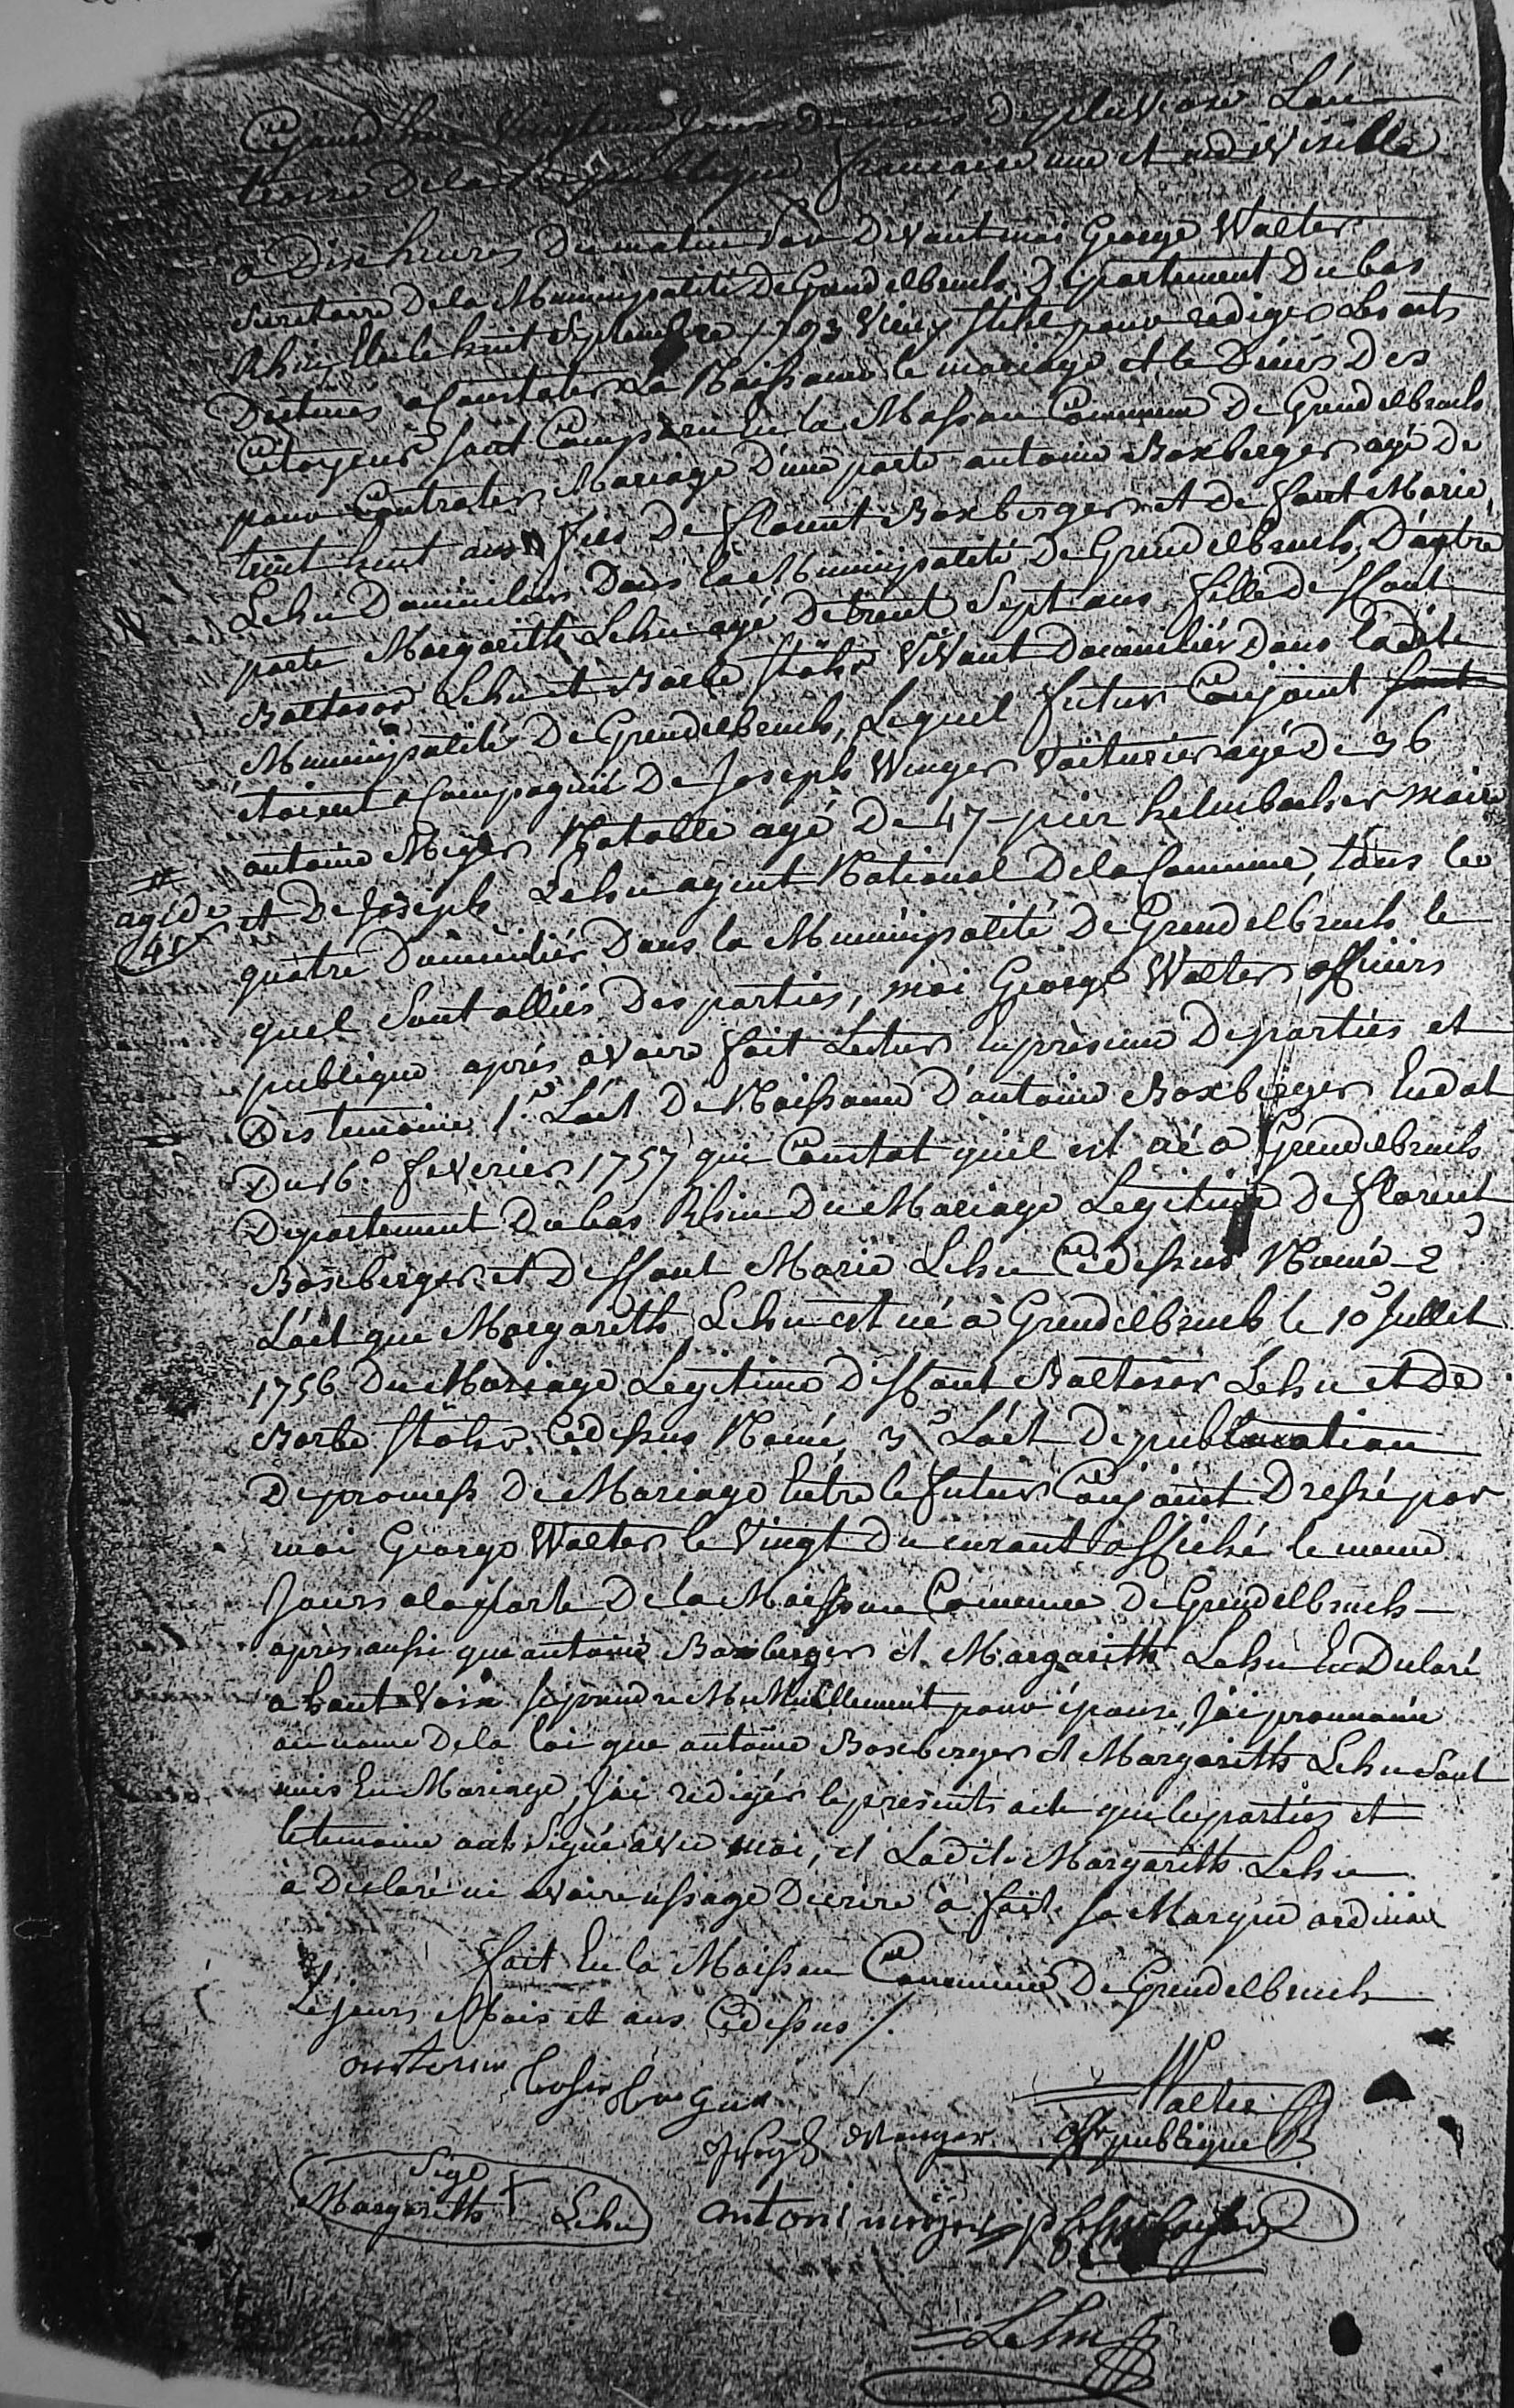 Cejourd'hui Vingt jours du mois De pluviose L'an
troisi De la Republique francaise une et indivisible
a Dix heures Du matin Par Devant moi George Walter
Secretaire De la Municipalité De Grendelbruch, Département Du bas
Rhin, Elu le huit Septembre 1793 Vieux Stile pour rediger Les acts
Destinés a Constater La Naissance le mariage et le Décés Des
Citoyens sont Comparu En la Maison Commune De Grendelbruch
pour Contrater Mariage D'une parte antoine Boxberger agé De
trent huit ans fils De florent Boxberger et De faut Marie
Lehn Domiciliers Dans la Municipalité De Grendelbruch, D'autre
parte Margarith Lehn agé De trent Sept ans fille Deffunt
Baltasar Lehn et Barbe Stöhr Vivant Domiciliér Dans Ladite
Municipalité De Grendelbruch, Lequel futur Conjoint
étoient acompagnié De Joseph Winger Voiturier agé De 36
antoine Meÿer Notable agé De 47 – pier helmbacher Maire
agé de
41
et De Joseph Lehn agent National De la Commune, tous les
quatre Domiciliér Dans la Municipalité De Grendelbruch le
quel Sont alliés Des parties, moi George Walter officiers
publique après avoire fait Lectur En présence De parties et
Des temoins 1.° L'act De Naissance D'antoine Boxberger En dat
Du 16.e feverier 1757 qui Constat qu'il est né a Grendelbruch
Departement Du bas Rhin Du Mariage Legitime De florent
Boxberger et Deffunt Marie Lehn Cidessus Nomé 2°
L'act que Margarith Lehn est né à Grendelbruch le 10 Jullet
1756 Du Mariage Legitime Diffunt Baltasar Lehn et De
Barbe Stöhr Cidessus Nomé, 3° L'act De publication
De promess De Mariage Entre le futur Conjoint Dressé par
moi George Walter le Vingt Du curant affiché le meme
Jours a la porte De la Maisson Comune De Grendelbruch –
après aussi que antoine Boxberger et Margarith Lehn En Declaré
a haut voix se prendre Mutuellement pour épouse, J'ai prononcée
au nome De la loi que antoine Boxberger et Margarith Lehn Sont
unis En Mariage, J'ai redigér le présents acte que le parties et
le temoins ont Signé avec moi, et Ladite Margarith Lehn
à Declaré ni avoire ussage D'ecrire à fait sa Marque ordinair
fait En la Maisson Commune De Grendelbruch
Le jours Mois et ans Cidessus ./.
Walter
off. publique
Joseph Wenger
Sige
Margarith Lehn
antoni meÿer
Lehn